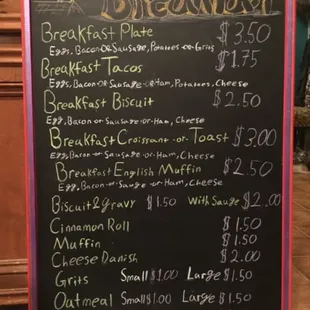 Breakfast
Breakfast Plate $3.50
Eggs, Bacon-or-Sausage, Potatoes-or-Grits
Breakfast Tacos $1.75
Eggs, Bacon-or-Sausage-or-Ham, Potatoes, Cheese
Breakfast Biscuit $2.50
Egg, Bacon-or-Sausage-or-Ham, Cheese
Breakfast Croissant-or-Toast $3.00
Egg, Bacon-or-Sausage-or-Ham, Cheese
Breakfast English Muffin $2.50
Egg, Bacon-or-Sauge-or-Ham, Cheese
Biscuit & gravy $1.50 With Sauge $2.00
Cinnamon Roll $1.50
Muffin $1.50
Cheese Danish $2.00
Grits Small $1.00 Large $1.50
Oatmeal Small $1.00 Large $1.50